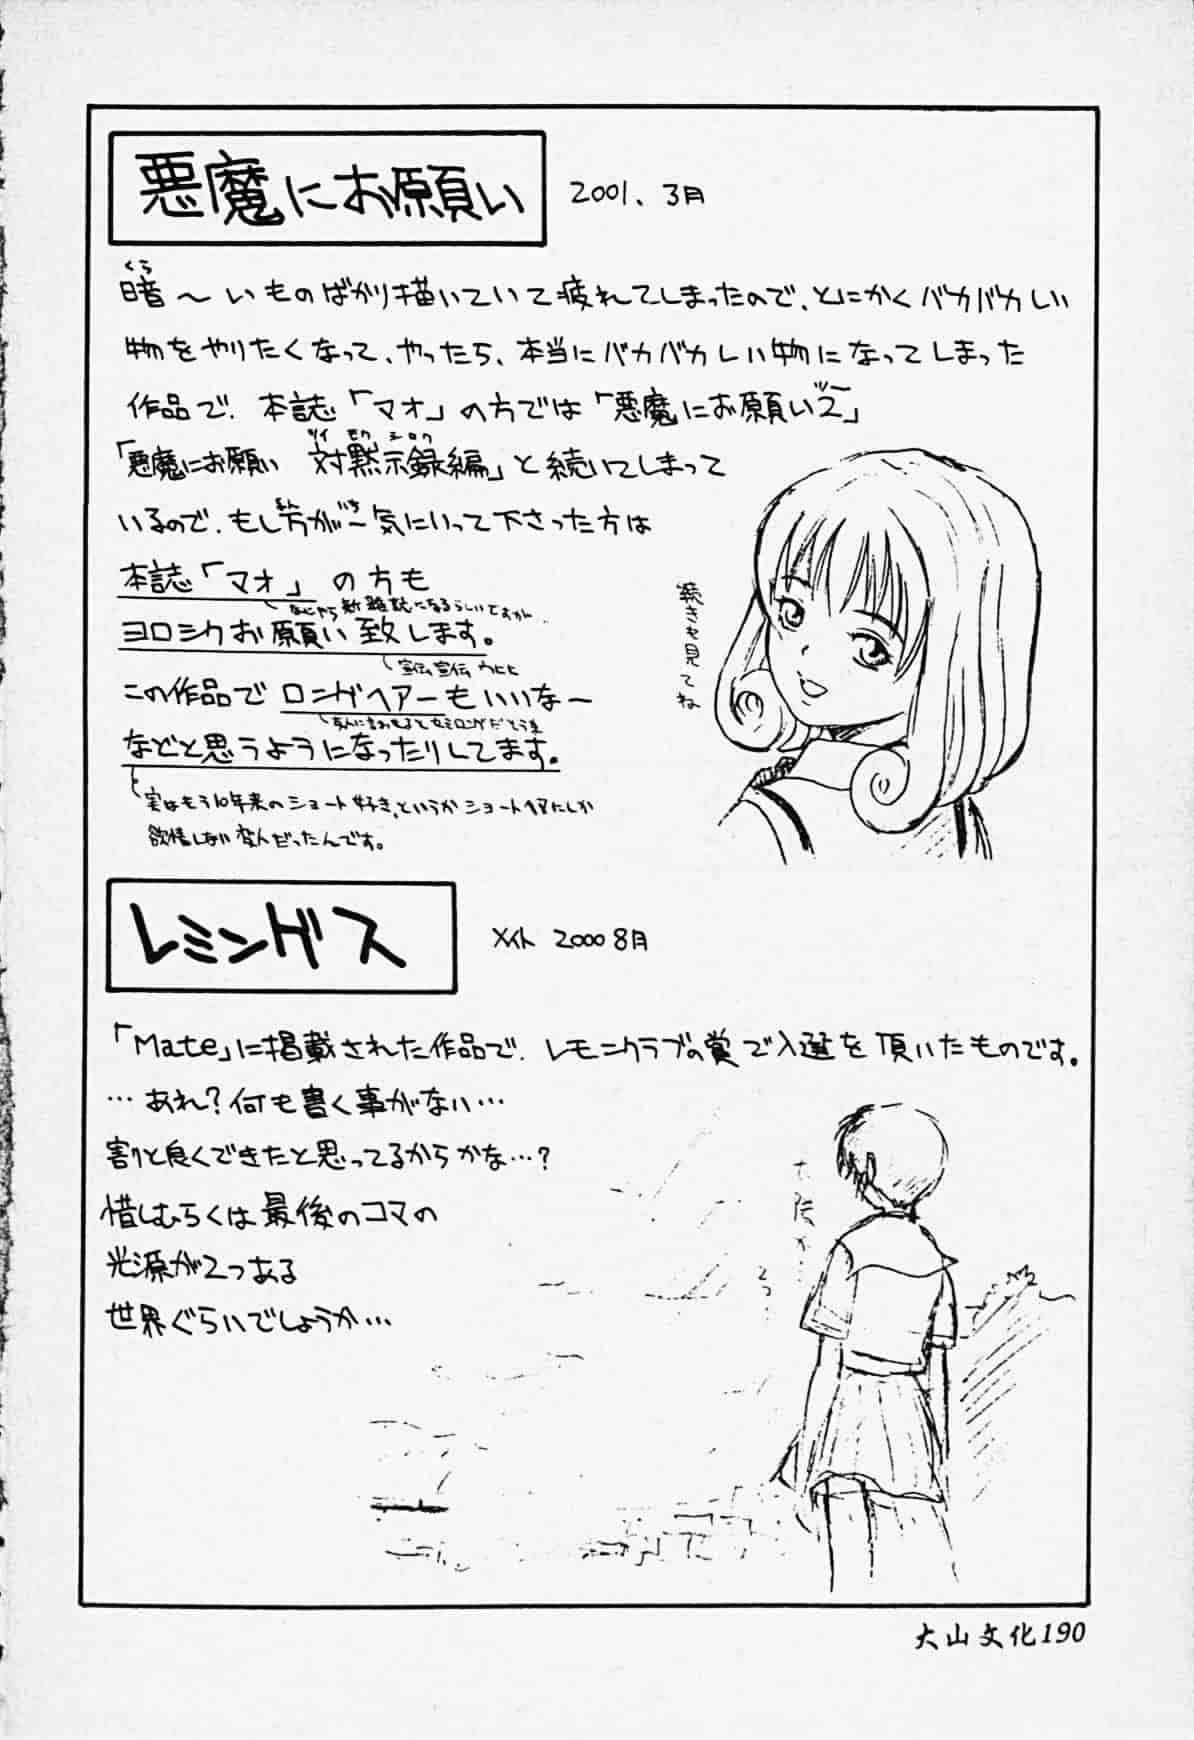 悪魔にお願い 2001、3月
暗〜いものばかり描いていて疲れてしまったので、とにかくバカバカしい
くら
物をやりたくなって、やったら、本当にバカバカしい物になってしまった
作品で、本誌「マオ」の方では「悪魔にお願い2」
ツー
「悪魔にお願い 対黙示録編」と続いてしまって
ツイ モク シロク
いるので、もし万が一気にいって下さった方は
まん いち
本誌「マオ」の方も
なにやら新雑誌になるらしいですが
ヨロシクお願い致します。
宣伝宣伝 ウヒヒ
この作品でロングヘアーもいいな〜
などと思うようになったりしてます。
実はもう10年来のショート好き、というかショートヘアにしか
欲情しない変人だったんです。
続きも見てね
レミングス メイト 2000 8月
「Mate」に掲載された作品で、レモンクラブの賞で入選を頂いたものです。
…あれ?何も書く事がない…
割と良くできたと思ってるからかな…?
惜しむらくは最後のコマの
光源が2つある
世界ぐらいでしょうか…
太陽が…
2つ…
大山文化190